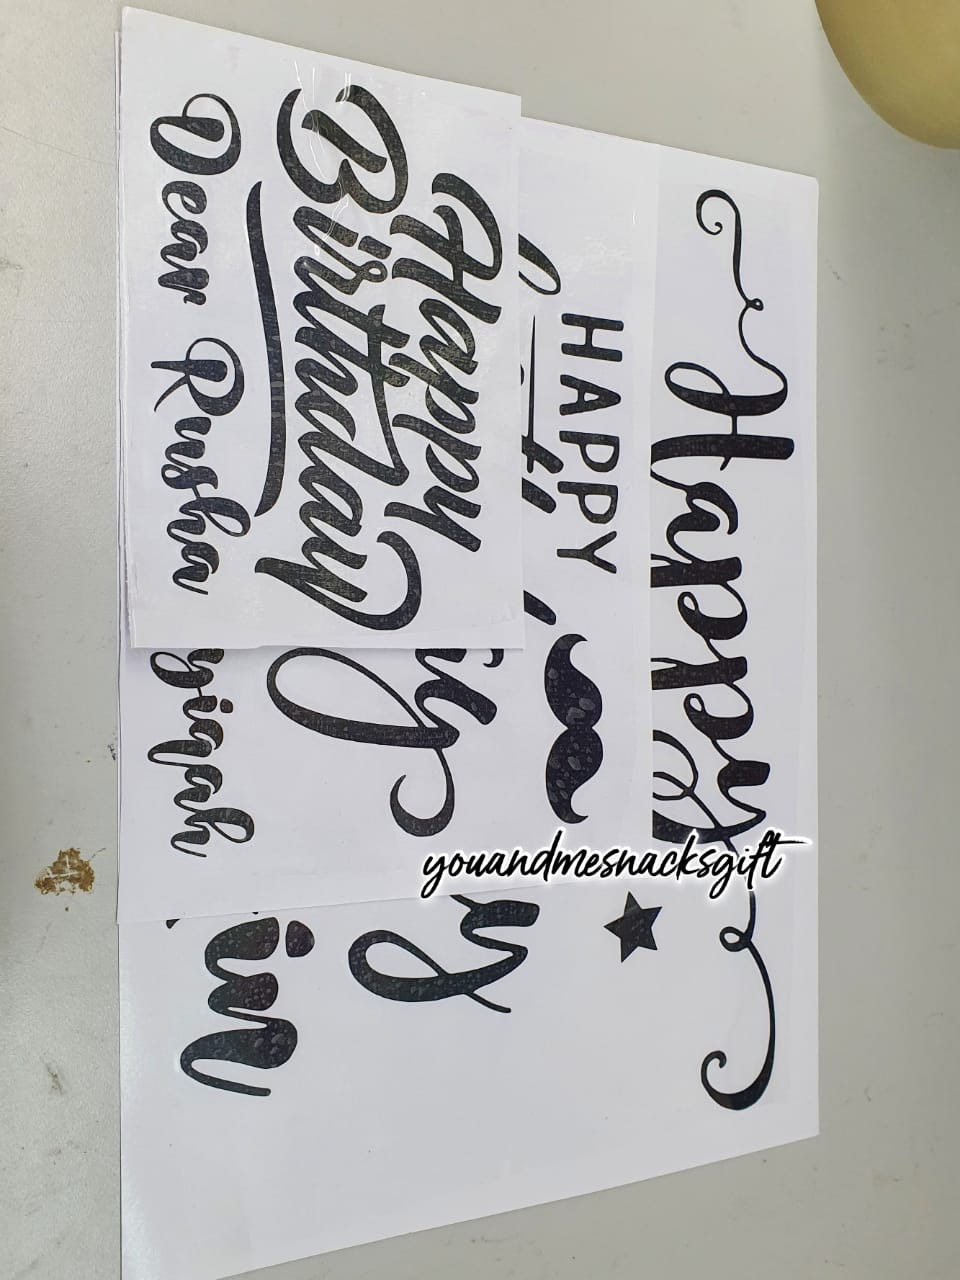 Happy
Birthday
Dear Rusha
HAPPY
Happy
youandmesnacksgift